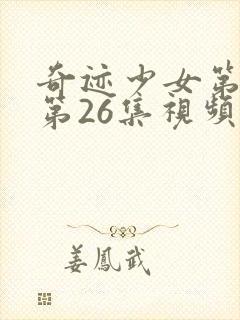 奇迹少女第
第26集視頻
姜鳳武